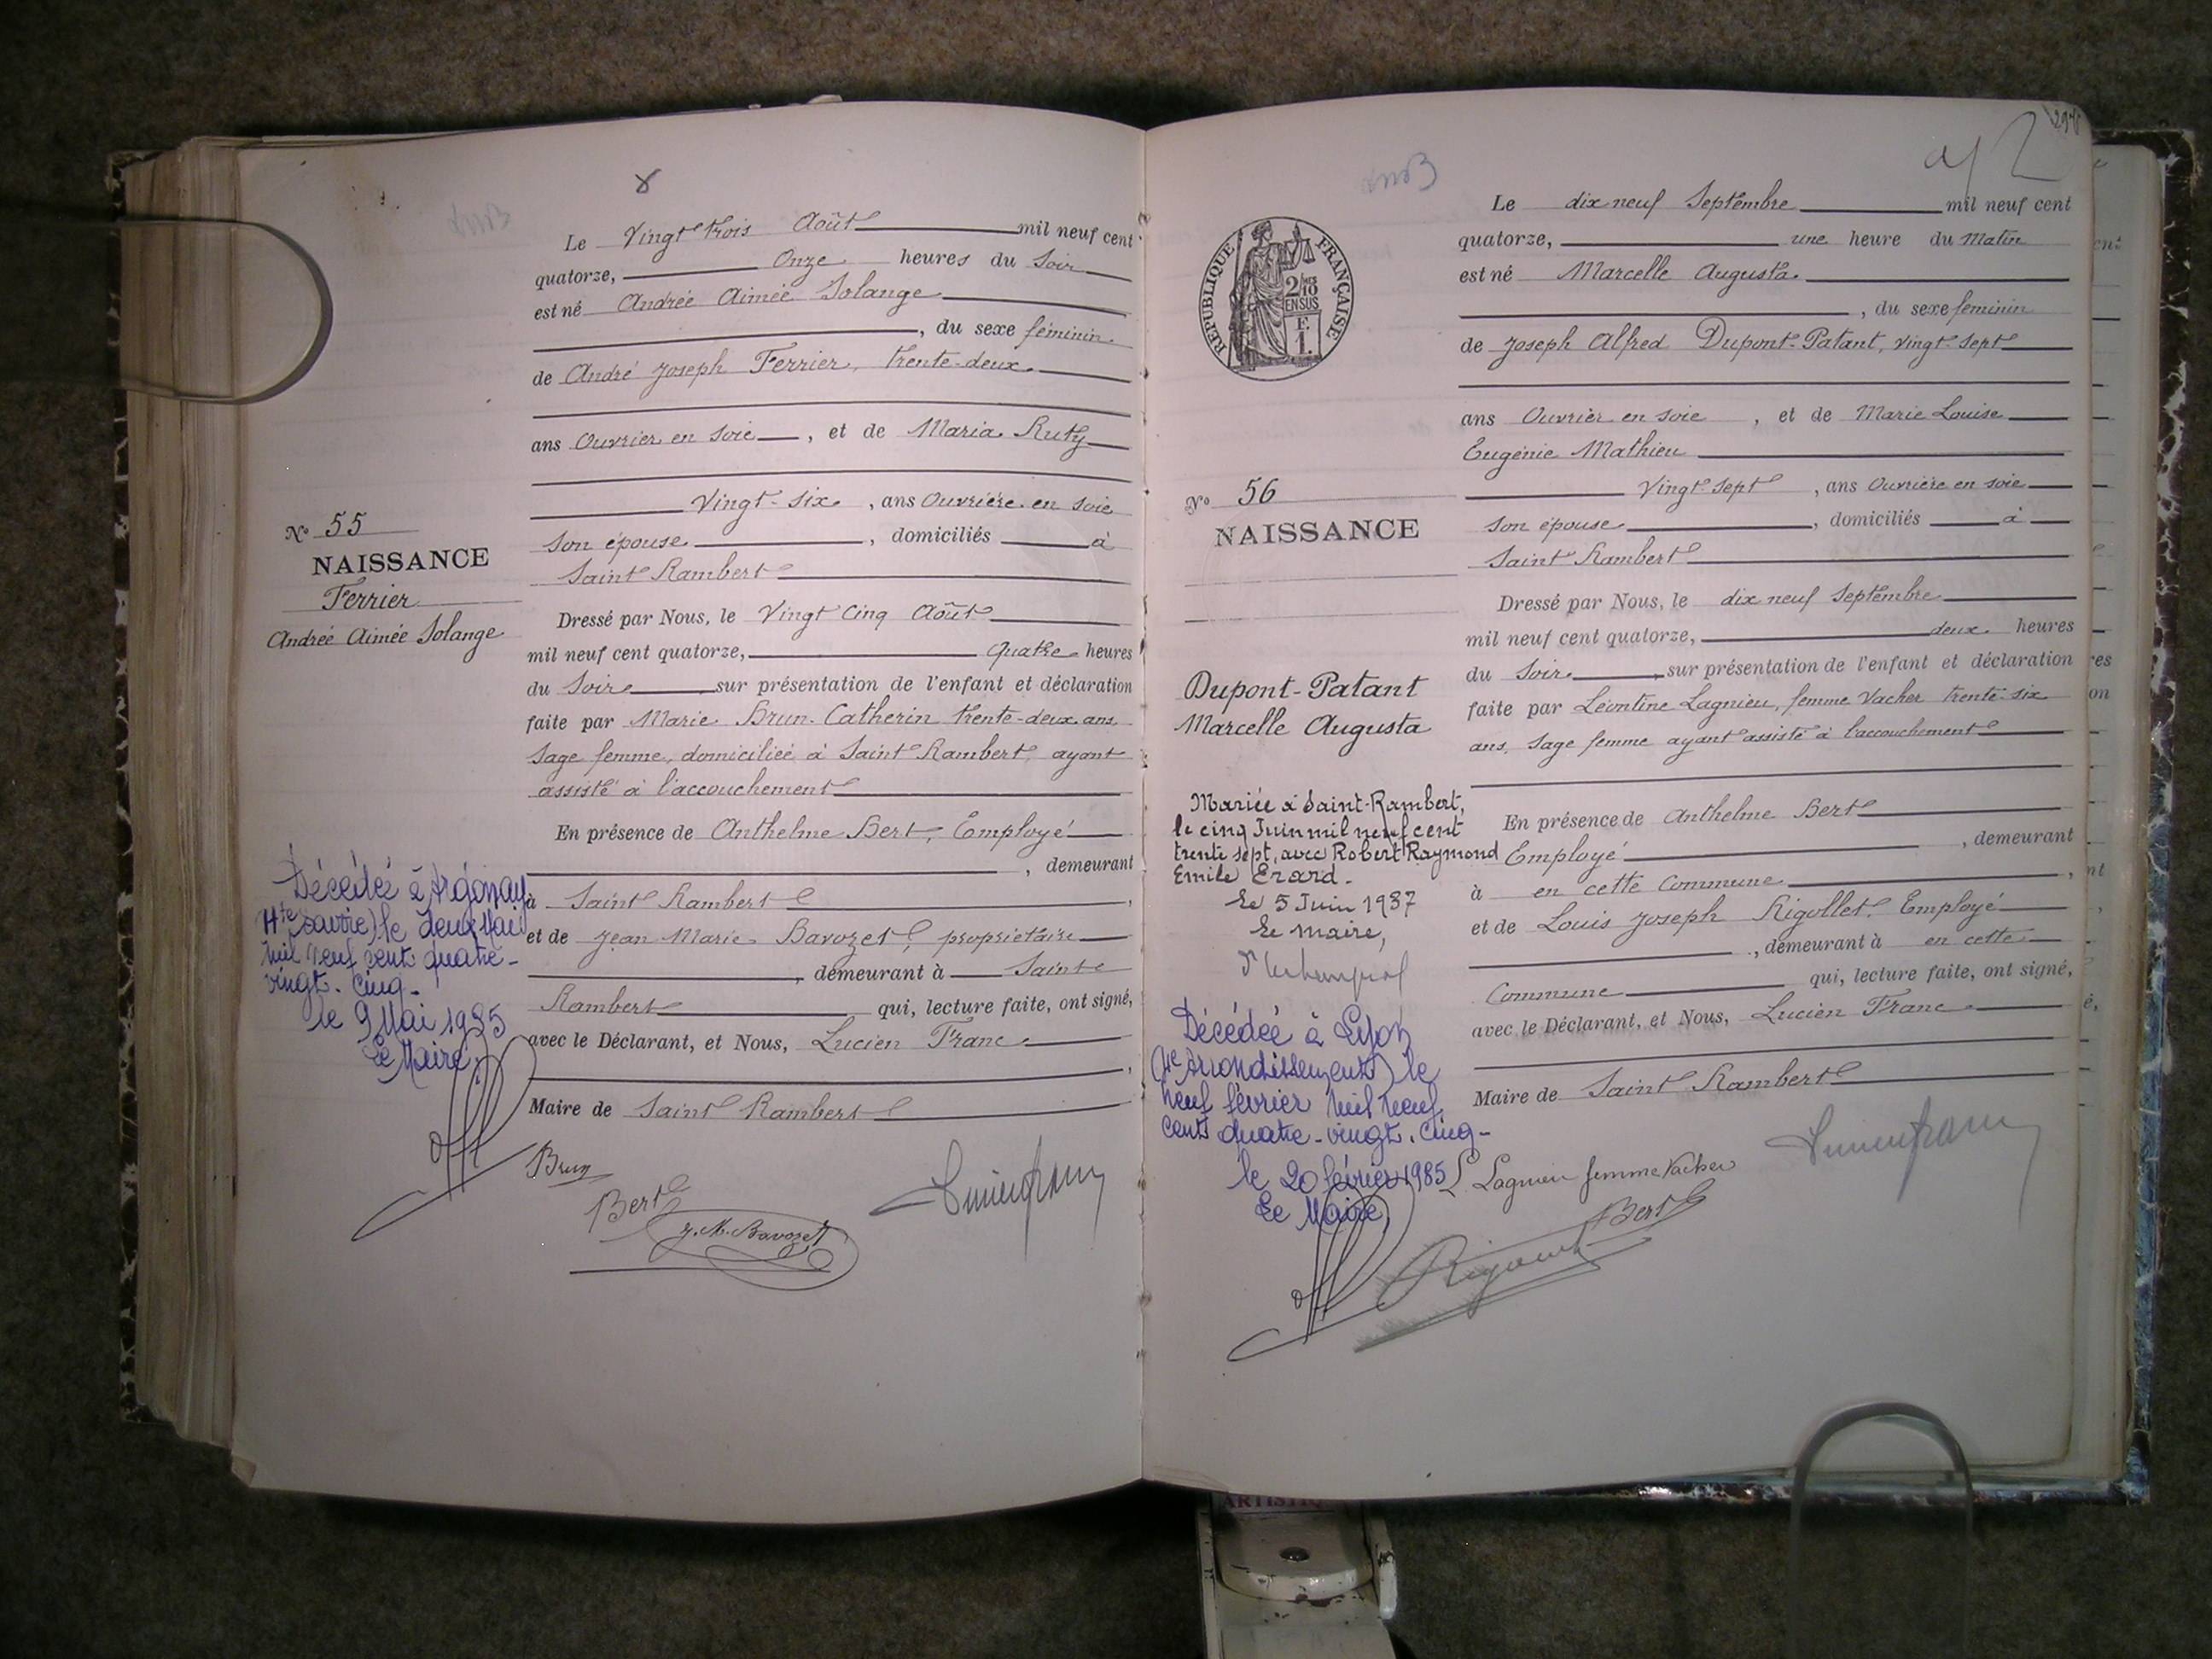 Le Vingt trois Août mil neuf cent
quatorze, Onze heures du Soir
est né Andrée Aimée Solange
, du sexe féminin
de André Joseph Ferrier, trente-deux
ans Ouvrier en soie, et de Maria Ruty
Vingt-six, ans Ouvrière en soie
son épouse, domiciliés à
Saint Rambert
Dressé par Nous, le Vingt Cinq Août
mil neuf cent quatorze, Quatre heures
du Soir sur présentation de l'enfant et déclaration
faite par Marie Brun-Catherin trente-deux ans,
Sage femme, domiciliée à Saint Rambert, ayant
assisté à l'accouchement
En présence de Anthelme Bert, Employé
, demeurant
à Saint Rambert,
et de Jean Marie Bavozet, propriétaire
, demeurant à Saint
Rambert qui, lecture faite, ont signé,
avec le Déclarant, et Nous, Lucien Franc
,
Maire de Saint Rambert
Nº 55
NAISSANCE
Ferrier
Andrée Aimée Solange
Décédée à Argonay
Hte Savoie) le deux Mai
mil neuf cent quatre-
vingt-cinq-
le 9 Mai 1985
Le Maire,
Brun
Bert
J. M. Bavozet
Lucien Franc
RÉPUBLIQUE FRANÇAISE
2/10
EN SUS
F.
1.
Le dix neuf Septembre mil neuf cent
quatorze, une heure du Matin
est né Marcelle Augusta
, du sexe féminin
de Joseph Alfred Dupont-Patant, vingt-sept
ans Ouvrier en soie, et de Marie Louise
Eugénie Mathieu
Vingt-sept, ans Ouvrière en soie
son épouse, domiciliés à
Saint Rambert
Dressé par Nous, le dix neuf Septembre
mil neuf cent quatorze, deux heures
du Soir, sur présentation de l'enfant et déclaration
faite par Léontine Lagnieu, femme Vacher trente-six
ans, Sage femme ayant assisté à l'accouchement
En présence de Anthelme Bert
Employé, demeurant
à en cette Commune,
et de Louis Joseph Rigollet, Employé
, demeurant à en cette
Commune qui, lecture faite, ont signé,
avec le Déclarant, et Nous, Lucien Franc
Maire de Saint Rambert
Nº 56
NAISSANCE
Dupont-Patant
Marcelle Augusta
Mariée à Saint-Rambert,
le cinq Juin mil neuf cent
trente sept, avec Robert Raymond
Emile Erard.
Le 5 Juin 1937
Le Maire,
Décédée à Lyon
(4e Arrondissement) le
neuf février mil neuf
cent quatre-vingt-cinq-
le 20 février 1985
Le Maire,
L. Lagnieu femme Vacher
Bert
Lucien Franc
ARTISTIQ